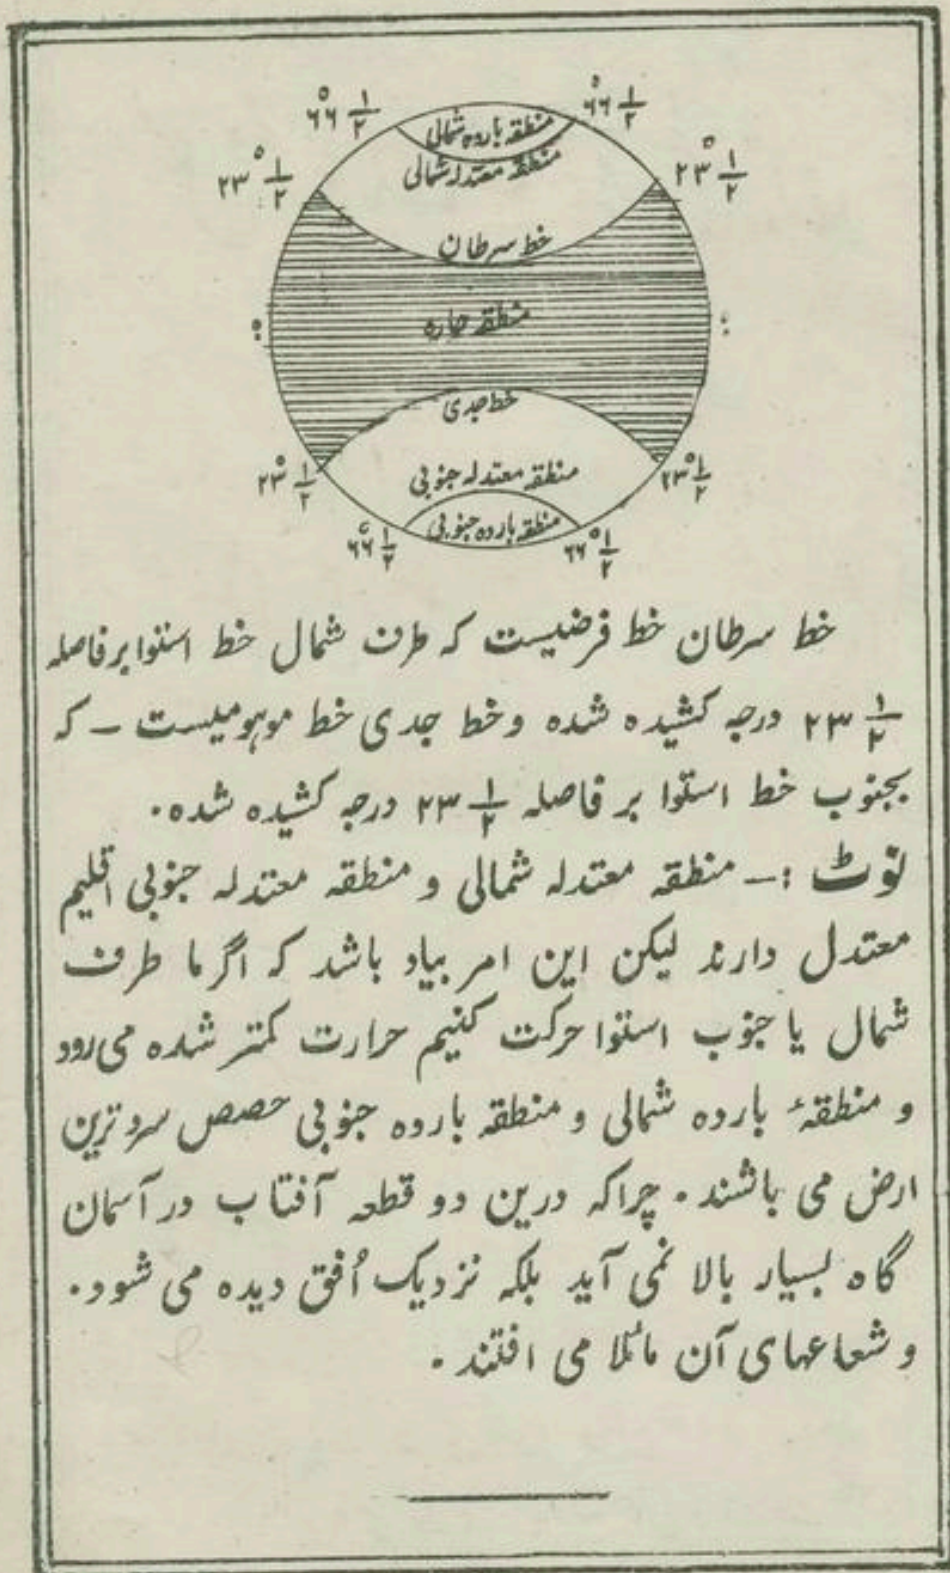 ۶۶ ۱/۲° ۶۶ ۱/۲°
منطقه بارده شمالی
۲۳ ۱/۲° ۲۳ ۱/۲°
منطقه معتدله شمالی
خط سرطان
۰° منطقه حاره ۰°
خط جدی
۲۳ ۱/۲° ۲۳ ۱/۲°
منطقه معتدله جنوبی
۶۶ ۱/۲° ۶۶ ۱/۲°
منطقه بارده جنوبی
خط سرطان خط فرضیست که طرف شمال خط استوا بر فاصله
۲۳ ۱/۲ درجه کشیده شده و خط جدی خط موہومیست – که
بجنوب خط استوا بر فاصله ۲۳ ۱/۲ درجه کشیده شده۰
نوٹ :– منطقه معتدله شمالی و منطقه معتدله جنوبی اقلیم
معتدل دارند لیکن این امر بیاد باشد که اگر ما طرف
شمال یا جنوب استوا حرکت کنیم حرارت کمتر شده می رود
و منطقۀ بارده شمالی و منطقه بارده جنوبی حصص سرد ترین
ارض می باشند۰ چراکه درین دو قطعه آفتاب در آسمان
گاه بسیار بالا نمی آید بلکه نزدیک اُفق دیده می شود۰
و شعاعهای آن مائلا می افتند۰